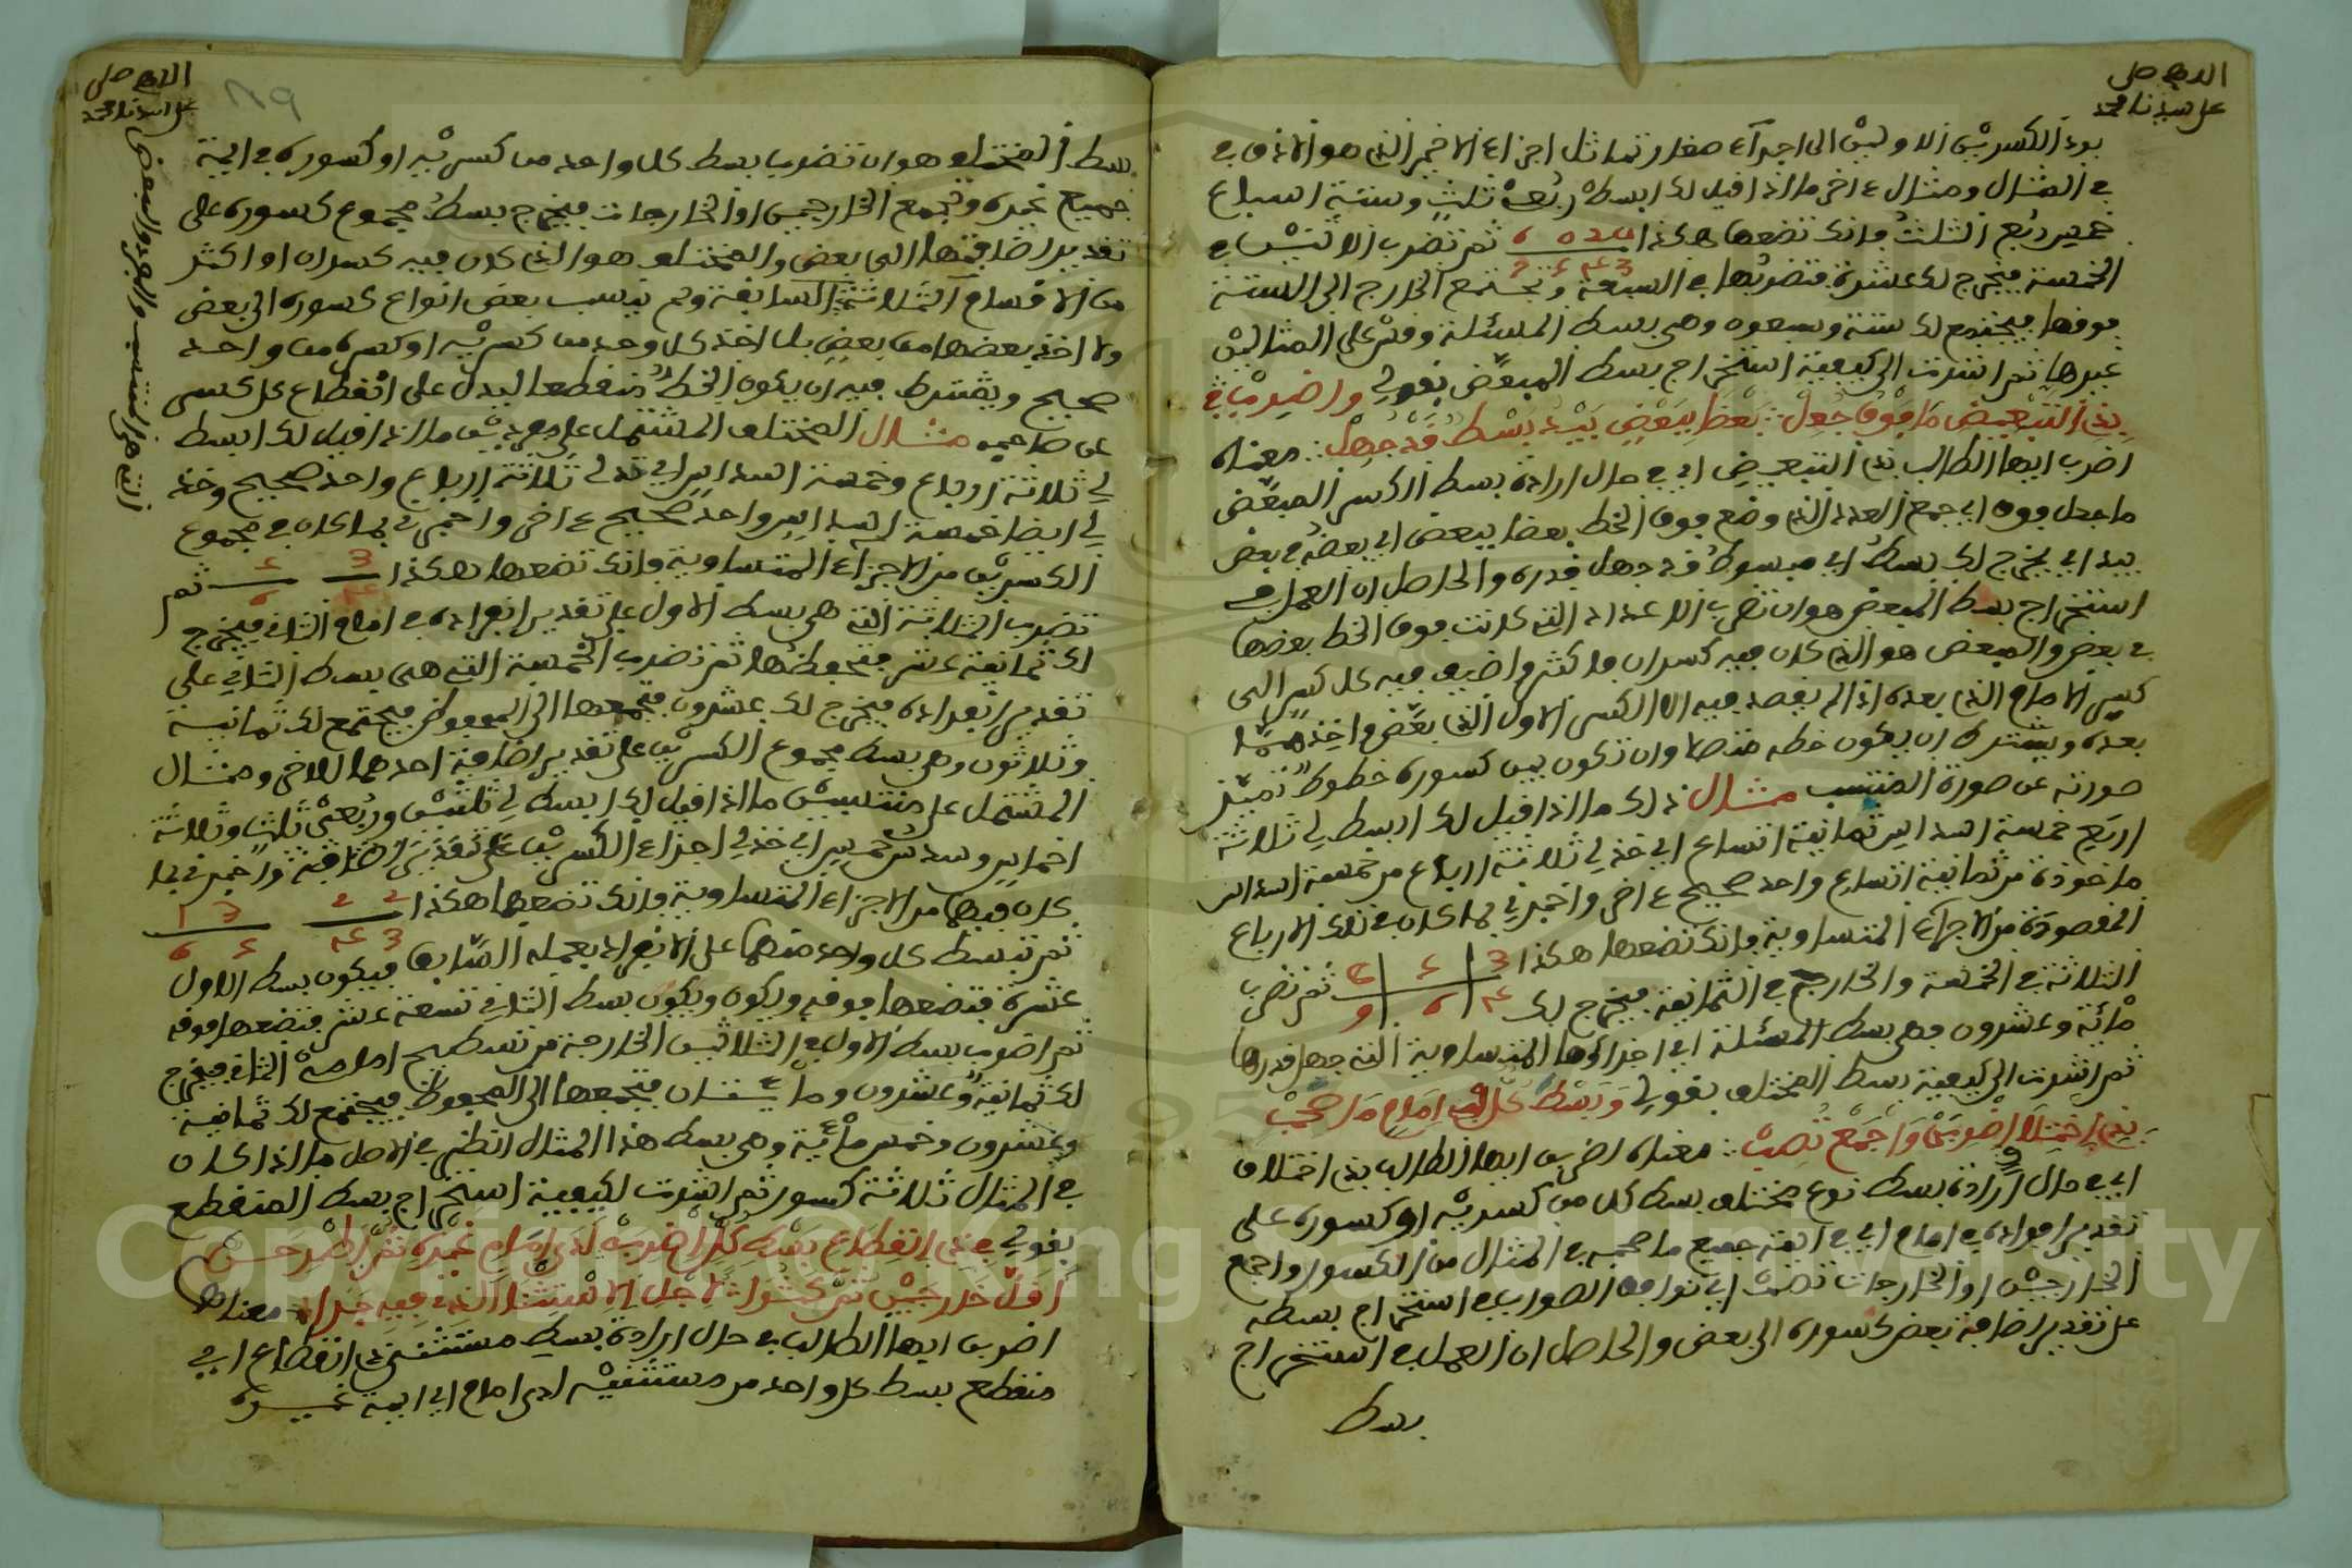 اللهم صل
على سيدنا محمد
برد الكسرين الاولين الى اجزاء صغار تماثل اجزاء الاخير الذي هو الاذق في
في المثال ومثال ءاخر ما اذا قيل لك ابسط ربع ثلث وستة اسباع
ربع الثلث فانك تضعها هكذا ثم تضرب الاثنين في
الخمسة فيخرج لك عشرة فتضربها في السبعة وتجمع الخارج الى الستة
فوقها فيجتمع لك ستة وسبعون وهي بسط المسئلة وقس على المثالين
غيرها ثم اشرت الى كيفية استخراج بسط المبعض بقولي واضرب في
ذي التبعيض ما فوق جعل بعضا ببعض يبد بسط قد جهل معناه
اضرب ايها الطالب في ذي التبعيض اي في حال ارادة بسط الكسر المبعض
ما جعل فوق اي جمع العدد الذي وضع فوق الخط بعضا ببعض اي بعضه في بعض
يبد اي يخرج لك بسط اي مبسوط قد جهل قدره والحاصل ان العمل في
استخراج بسط المبعض هو ان تضرب الاعداد التي كانت فوق الخط بعضها
في بعض والمبعض هو الذي كان فيه كسران فاكثر واضيف فيه كل كسر الى
كسر الامام الذي بعده اذ لم يقصد فيه الا الكسر الاول الذي بعض واخذ مما
بعده ويشترط ان يكون خطه متصلا وان تكون بين كسوره خطوط تميز
صورته عن صورة المنتسب مثال ذلك ما اذا قيل لك ابسط لي ثلاثة
اربع خمسة اسداس ثمانية اتساع اي خذ لي ثلاثة ارباع من خمسة اسداس
ماخوذة من ثمانية اتساع واحد صحيح ءاخر واخبرني بما كان في تلك الارباع
المقصودة من الاجزاء المتساوية فانك تضعها هكذا ثم تضرب
الثلاثة في الخمسة والخارج في الثمانية فيخرج لك
مائة وعشرون وهي بسط المسئلة اي اجزاؤها المتساوية التي جهل قدرها
ثم اشرت الى كيفية بسط المختلف بقولي وبسط كل في امام ما صحب
بذي اختلاف اضربن واجمع تصب معناه اضربن ايها الطالب بذي اختلاف
اي في حال ارادة بسط نوع مختلف بسط كل من كسريه او كسوره على
تقدير افراده في امام اي في ايمة جميع ما صحبه في المثال من الكسور واجمع
الخارجين او الخارجات تصب اي توافق الصواب في استخراج بسطه
على تقدير اضافة بعض كسوره الى بعض والحاصل ان العمل في استخراج
بسط
اللهم صل
على سيدنا محمد
٨٩
بسط المختلف هو ان تضرب بسط كل واحد من كسريه او كسوره في ايمة
جميع غيره وتجمع الخارجين او الخارجات فيخرج بسط مجموع كسوره على
تقدير اضافتها الى بعض والمختلف هو الذي كان فيه كسران او اكثر
من الاقسام الثلاثة السابقة ولم ينسب بعض انواع كسوره الى بعض
ولا اخذ بعضها من بعض بل اخذ كل واحد من كسريه او كسره من واحد
صحيح ويشترط فيه ان يكون الخط منقطعا ليدل على انقطاع كل كسر
عن صاحبه مثال المختلف المشتمل على مفردين ما اذا قيل لك ابسط
لي ثلاثة ارباع وخمسة اسداس اي خذ لي ثلاثة ارباع واحد صحيح وخذ
لي ايضا خمسة اسداس واحد صحيح ءاخر واخبرني بما كان في مجموع
الكسرين من الاجزاء المتساوية فانك تضعها هكذا ثم
تضرب الثلاثة التي هي بسط الاول على تقدير انفراده في امام الثاني فيخرج
لك ثمانية عشر فتحفظها ثم تضرب الخمسة التي هي بسط الثاني على
تقدير انفراده فيخرج لك عشرون فتجمعها الى المحفوظ فيجتمع لك ثمانية
وثلاثون وهي بسط مجموع الكسرين على تقدير اضافة احدهما للاخر ومثال
المشتمل على منتسبين ما اذا قيل لك ابسط لي ثلثين وربعي ثلث وثلاثة
اخماس وسدس خمس اي خذ لي اجزاء الكسرين على تقدير اضافة واخبرني بما
كان فيهما من الاجزاء المتساوية فانك تضعهما هكذا
ثم تبسط كل واحد منهما على الانفراد بعمله السابق فيكون بسط الاول
عشرة فتضعها فوقه ويكون ويكون بسط الثاني تسعة عشر فتضعها فوقه
ثم اضرب بسط الاول في الثلاثين الخارجة من تسطيح امامي الثاني فيخرج
لك ثمانية وعشرون ومائتان فتجمعها الى المحفوظ فيجتمع لك ثمانية
وعشرون وخمس مائة وهي بسط هذا المثال انظر في الاصل ما اذا كان
في المثال ثلاثة كسور ثم اشرت لكيفية استخراج بسط المنقطع
بقولي في ذي انقطاع بسط كل اضرب لدى امام غيره ثم اطرحن
اقل خارجين ثم كثرا لاجل الاستثنا الذي فيه جرا معناها
اضرب ايها الطالب في حال ارادة بسط مستثنى ذي انقطاع اي
منقطع بسط كل واحد من مستثنييه لدى امام اي ايمة غيره